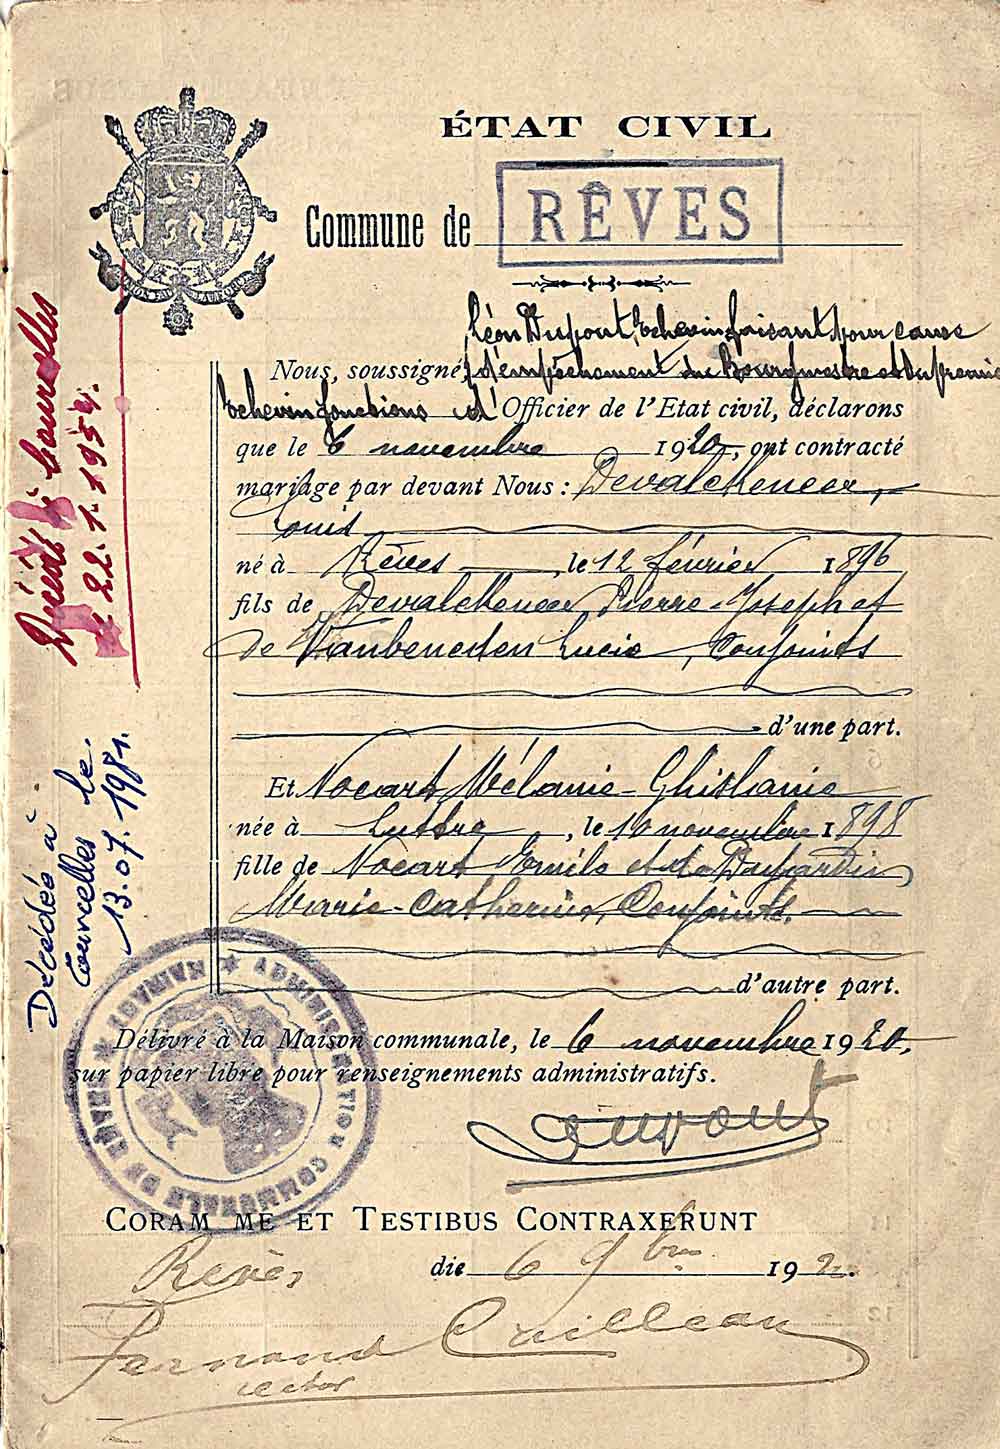 ÉTAT CIVIL
Commune de RÊVES
Léon Dupont, Echevin faisant pour cause
Nous, soussigné, d'empêchement du Bourgmestre et du premier
Echevin fonctions d'Officier de l'Etat civil, déclarons
que le 6 novembre 1920, ont contracté
mariage par devant Nous : Devalckeneer,
Louis
né à Rêves, le 12 février 1896
fils de Devalckeneer Pierre-Joseph et
de Vanbeneden Lucie, Conjoints
d'une part.
Et Nocart Mélanie-Ghislanie
née à Luttre, le 10 novembre 1898
fille de Nocart Emile et de Dujardin
Marie-Catherine, Conjoints.
d'autre part.
Délivré à la Maison communale, le 6 novembre 1920,
sur papier libre pour renseignements administratifs.
Dupont
ADMINISTRATION COMMUNALE DE
CORAM ME ET TESTIBUS CONTRAXERUNT
Rêves die 6 9bris 192
Fernand
rector
Décédé à Courcelles
le 22.1.1954.
Décédée à
Courcelles le
13.07.1981.